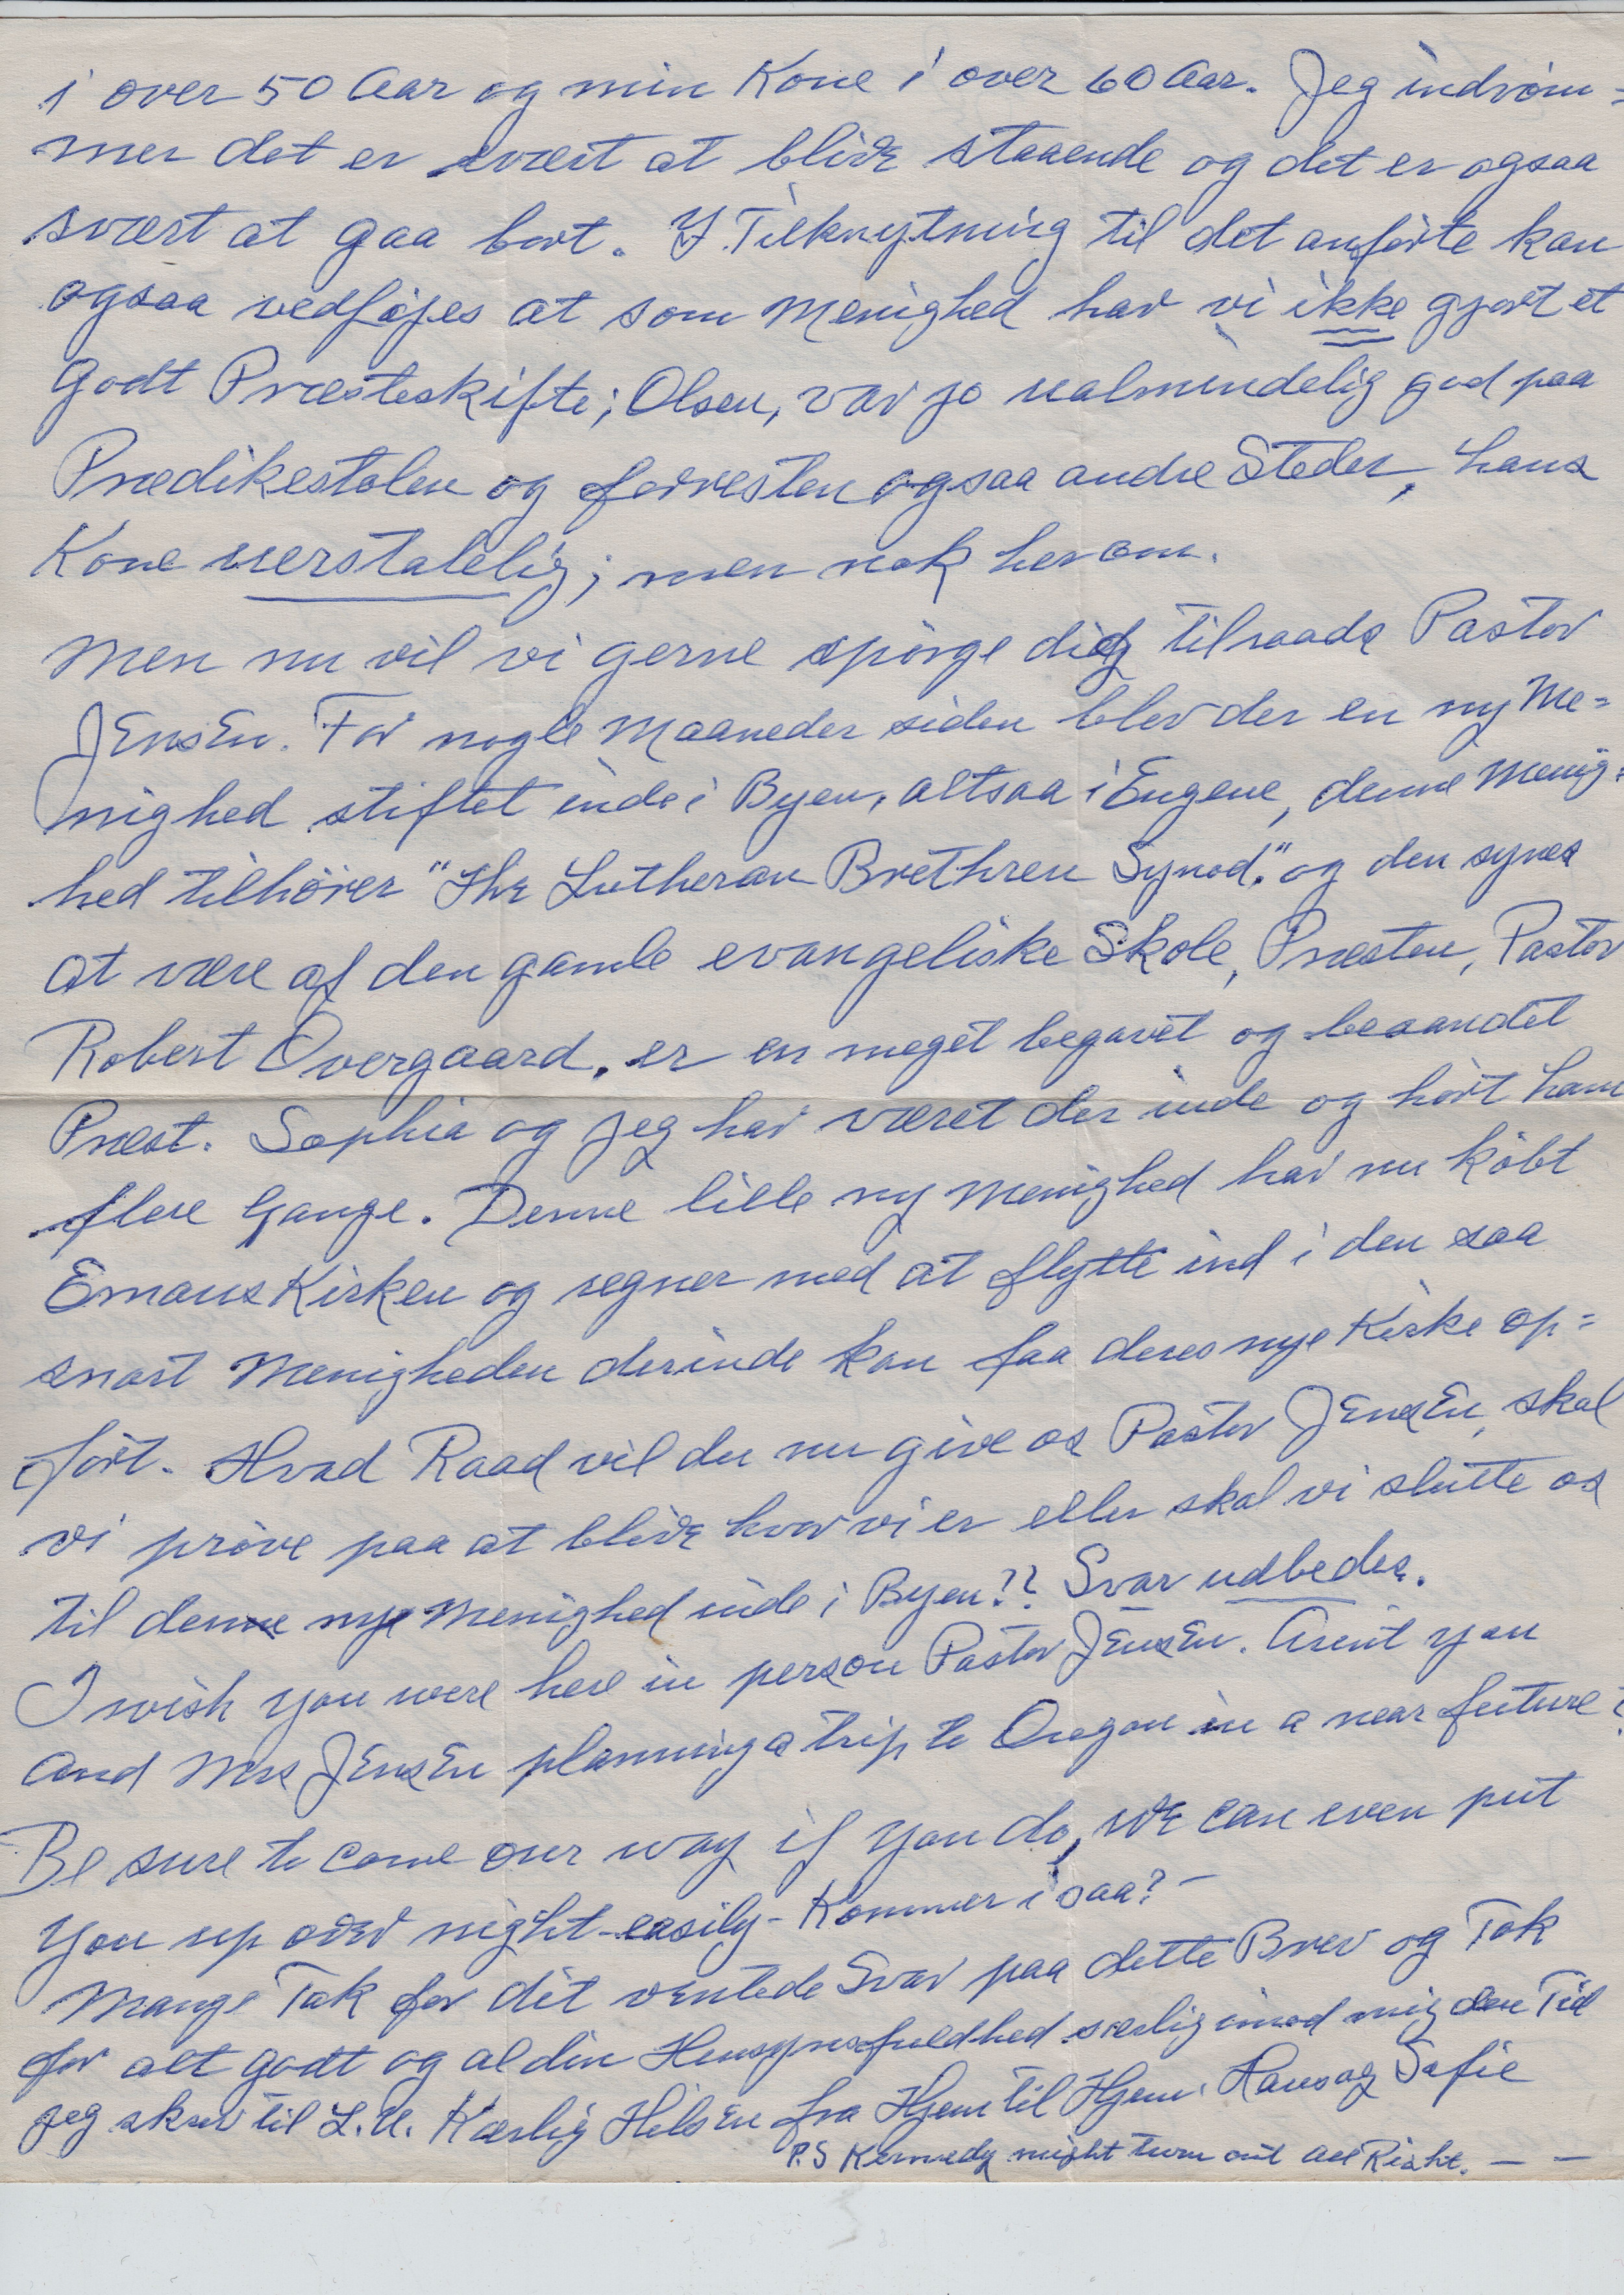 i over 50 Aar og min Kone i over 60 Aar. Jeg indrøm=
mer det er svært at blive staaende og det er ogsaa
svært at gaa bort. I Tilknytning til det anførte kan
ogsaa vedføjes at som Menighed har vi ikke gjort et
godt Præsteskifte; Olsen, var jo ualmindelig god paa
Prædikestolen og forresten ogsaa andre Steder, hans
Kone uerstatelig; men nok herom.
Men nu vil vi gerne spørge dig tilraads Pastor
Jensen. For nogle Maaneder siden blev der en ny Me=
nighed stiftet inde i Byen, altsaa i Eugene, denne Menig=
hed tilhører "The Lutheran Brethren Synod." og den synes
at være af den gamle evangeliske Skole, Præsten, Pastor
Robert Overgaard, er en meget begavet og beaandet
Præst. Sophia og jeg har været der inde og hørt ham
flere Gange. Denne lille ny Menighed har nu købt
Emaus Kirken og regner med at flytte ind i den saa
snart Menigheden derinde kan faa deres nye Kirke op=
ført. Hvad Raad vil du nu give os Pastor Jensen, skal
vi prøve paa at blive hvor vi er eller skal vi slutte os
til denne nye Menighed inde i Byen?? Svar udbedes.
I wish you were here in person Pastor Jensen. Arent you
and Mrs Jensen planning a trip to Oregon in a near future?
Be sure to come our way if you do, we can even put
you up over night-easily- Kommer i saa?-
Mange Tak for dit ventede Svar paa dette Brev og Tak
for alt godt og al din Hensynsfuldhed særlig imod mig den Tid
jeg skrev til L.U. Kærlig Hilsen fra Hjem til Hjem. Hans og Sofie
P.S Kennedy might turn out all Right. — —